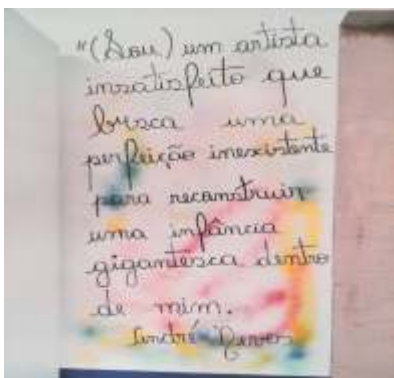 "(Sou) um artista
insatisfeito que
busca uma
perfeição inexistente
para reconstruir
uma infância
gigantesca dentro
de mim.
André Neves